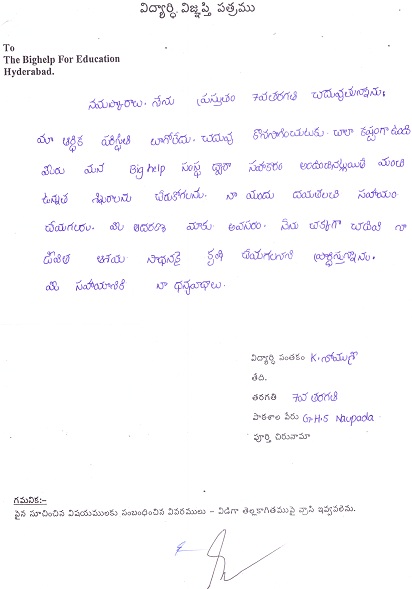 విద్యార్థి విజ్ఞప్తి పత్రము
To
The Bighelp For Education
Hyderabad.
నమస్కారాలు. నేను ప్రస్తుతం 7వ తరగతి చదువుతున్నాను.
మా ఆర్థిక పరిస్థితి బాగోలేదు. చదువు కొనసాగించుటకు చాలా కష్టంగా ఉంది
మీరు మన Big help సంస్థ ద్వారా సహకారం అందించినట్లయితే మంచి
ఉన్నత శిఖరాలను చేరుకోగలను. నా యందు దయతలచి సహాయం
చేయగలరు. మీ ఆదరణ మాకు అవసరం. నేను చక్కగా చదివి నా
ఆశయ సాధనకై కృషి చేయగలనని ప్రార్థిస్తున్నాను.
మీ సహాయానికి నా ధన్యవాదాలు.
విద్యార్థి సంతకం K.
తేది.
తరగతి 7వ తరగతి
పాఠశాల పేరు G.H.S Naupada
పూర్తి చిరునామా
గమనిక:-
పైన సూచించిన విషయములకు సంబంధించిన వివరములు - విడిగా తెల్లకాగితముపై వ్రాసి ఇవ్వవలెను.